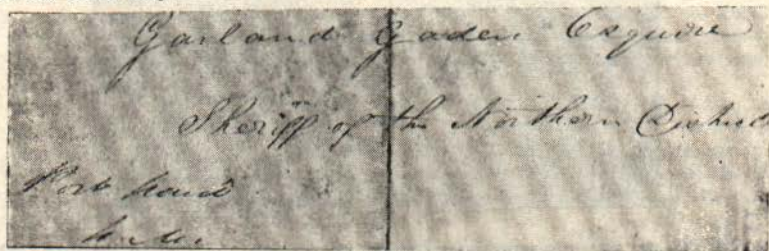 Garland Gaden Esquire
Sheriff of the Northern District
Port